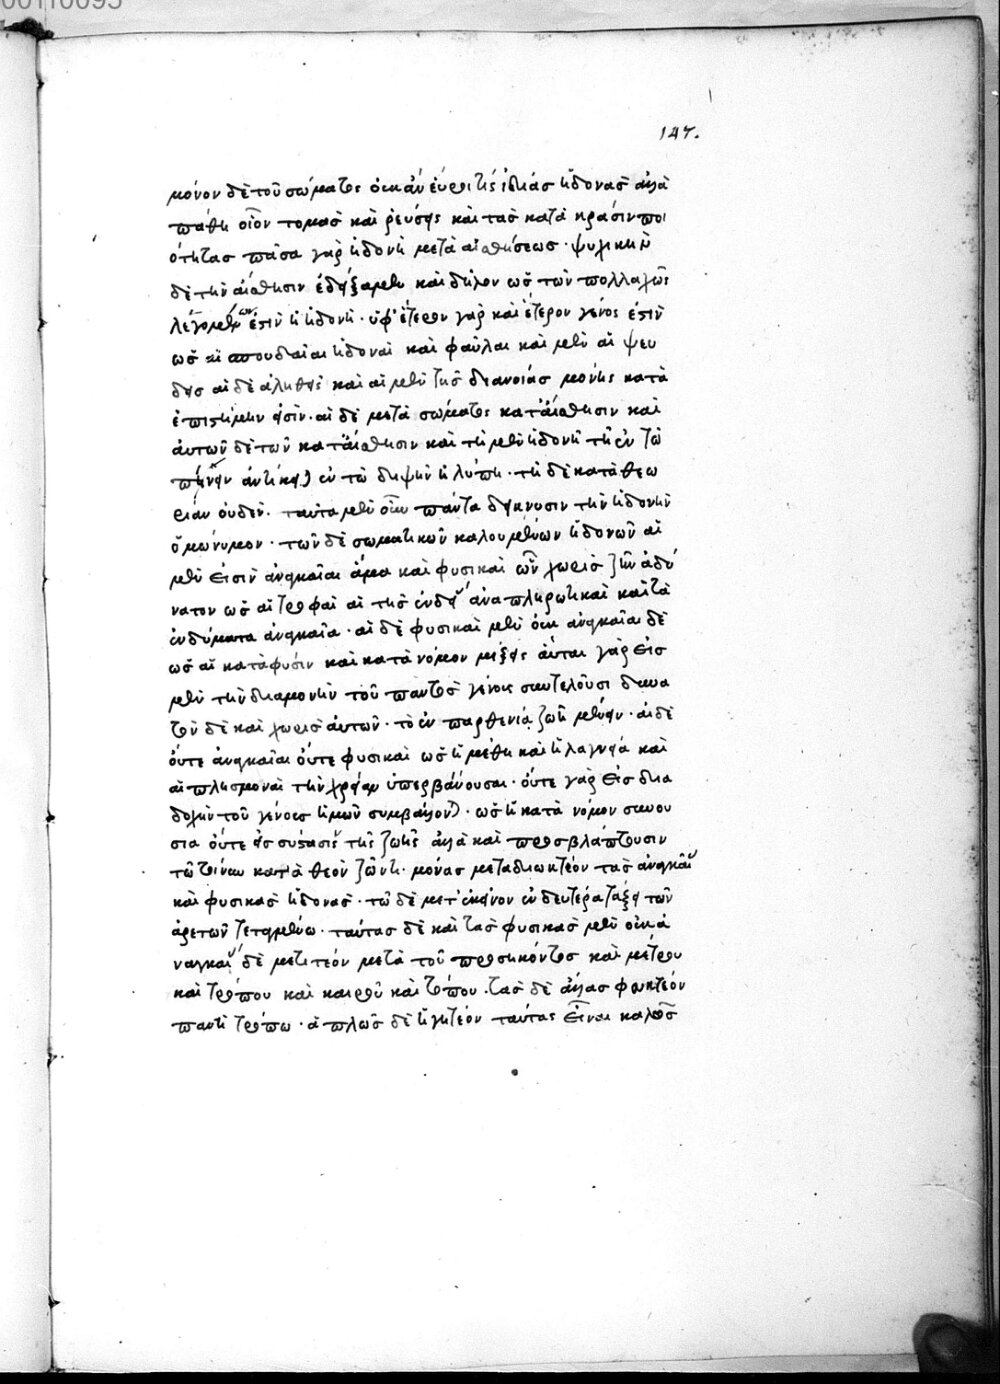 00110095
147.
μόνον δὲ τοῦ σώματος οὐκ ἂν εὕροι τίς ἰδίας ἡδονας ἀλλὰ
πάθη οἷον τομας καὶ ῥεύσεις καὶ τας κατὰ κρᾶσιν ποι
ότητας πᾶσα γὰρ ἡδονὴ μετὰ αἰσθήσεως · ψυχικὴν
δὲ τὴν αἴσθησιν ἐδείξαμεν καὶ δῆλον ὡς τῶν πολλαχῶς
λεγομένων ἐστὶν ἡ ἡδονὴ · ὑφ' ἕτερον γὰρ καὶ ἕτερον γένος ἐστὶν
ὡς αἱ σπουδαῖαι ἡδοναὶ καὶ φαῦλαι καὶ μὲν αἱ ψευ
δεῖς αἱ δὲ ἀληθεῖς καὶ αἱ μὲν τῆς διανοίας μόνης κατὰ
ἐπιστήμην εἰσὶν · αἱ δὲ μετὰ σώματος κατ' αἴσθησιν καὶ
αὐτῶν δὲ τῶν κατ' αἴσθησιν καὶ τῇ μὲν ἡδονῇ τῇ ἐν τῷ
πίνειν ἀντίκειται ἐν τῷ διψῆν ἡ λύπη · τῇ δὲ κατὰ θεω
ρίαν οὐδέν · ταῦτα μὲν οὖν πάντα δείκνυσιν τὴν ἡδονὴν
ὁμώνυμον · τῶν δὲ σωματικῶν καλουμένων ἡδονῶν αἱ
μὲν εἰσιν ἀναγκαῖαι ἅμα καὶ φυσικαὶ ὧν χωρὶς ζῆν ἀδύ
νατον ὡς αἱ τροφαὶ αἱ τῆς ἐνδείας ἀναπληρωτικαὶ καὶ τὰ
ἐνδύματα ἀναγκαῖα · αἱ δὲ φυσικαὶ μὲν οὐκ ἀναγκαῖαι δὲ
ὡς αἱ κατὰ φύσιν καὶ κατὰ νόμον μίξεις αὗται γὰρ εἰς
μὲν τὴν διαμονὴν τοῦ παντὸς γένους συντελοῦσι δυνα
τὸν δὲ καὶ χωρὶς αὐτῶν · τὸ ἐν παρθενίᾳ ζῆν μένειν · αἱ δὲ
οὔτε ἀναγκαῖαι οὔτε φυσικαὶ ὡς ἡ μέθη καὶ ἡ λαγνεία καὶ
αἱ πλησμοναὶ τὴν χρείαν ὑπερβαίνουσαι · οὔτε γὰρ εἰς δια
δοχὴν τοῦ γένους ἡμῶν συμβάλλονται · ὡς ἡ κατὰ νόμον συνου
σία οὔτε εἰς σύστασιν τῆς ζωῆς ἀλλὰ καὶ προσβλάπτουσιν
τῷ τοίνυν κατὰ θεὸν ζῶντι · μόνας μεταδιωκτέον τας ἀναγκαίας
καὶ φυσικας ἡδονας · τῷ δὲ μετ' ἐκεῖνον ἐν δευτέρα τάξει τῶν
ἀρετῶν τεταγμένω · ταύτας δὲ καὶ τας φυσικας μὲν οὐκ ἀ
ναγκαίας δὲ μετιτέον μετὰ τοῦ προσήκοντος καὶ μέτρου
καὶ τρόπου καὶ καιροῦ καὶ τόπου · τας δὲ ἄλλας φευκτέον
παντὶ τρόπω · ἁπλῶς δὲ ἡγητέον ταύτας εἶναι καλὰς